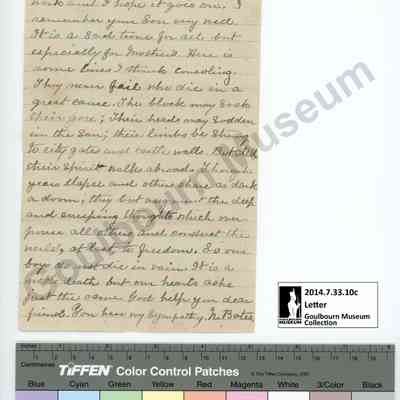 work and I hope it goes one. I
remember your Son very well
It is a Sad time for all but
especially for Mothers. Here is
some lines I think consoling.
They never fail who die in a
great cause. The block may soak
their gore; Their heads may sodden
in the Sun; their limbs be Strung
to city gates and castle walls. But still
their Spirit walks abroad. Though
years elapse and others share as dark
a doom, they but augment the deep
and sweeping thoughts which over
power all others and conduct the
world, at last to freedom. So our
boys do not die in vain. It is a
death but our hearts ache
just the same God help you dear
friend. You have my Sympathy. N. Bates
Goulbourn Museum
MUSEUM
2014.7.33.10c
Letter
Goulbourn Museum
Collection
Inches
Centimetres
TIFFEN Color Control Patches
© The Tiffen Company, 2007
Blue Cyan Green Yellow Red Magenta White 3/Color Black